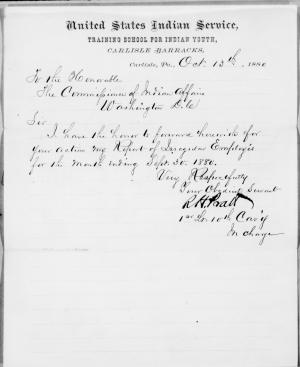 United States Indian Service,
TRAINING SCHOOL FOR INDIAN YOUTH,
CARLISLE BARRACKS,
Carlisle, Pa., Oct 13th, 1880
To the Honorable
The Commissioner of Indian Affairs
Washington D.C.
Sir
I have the honor to forward herewith for
your action my Report of Irregular Employes
for the month ending Sept. 30. 1880.
Very Respectfully
Your Obedient Servant
R H Pratt
1st Lt 10th Cav'y
In charge